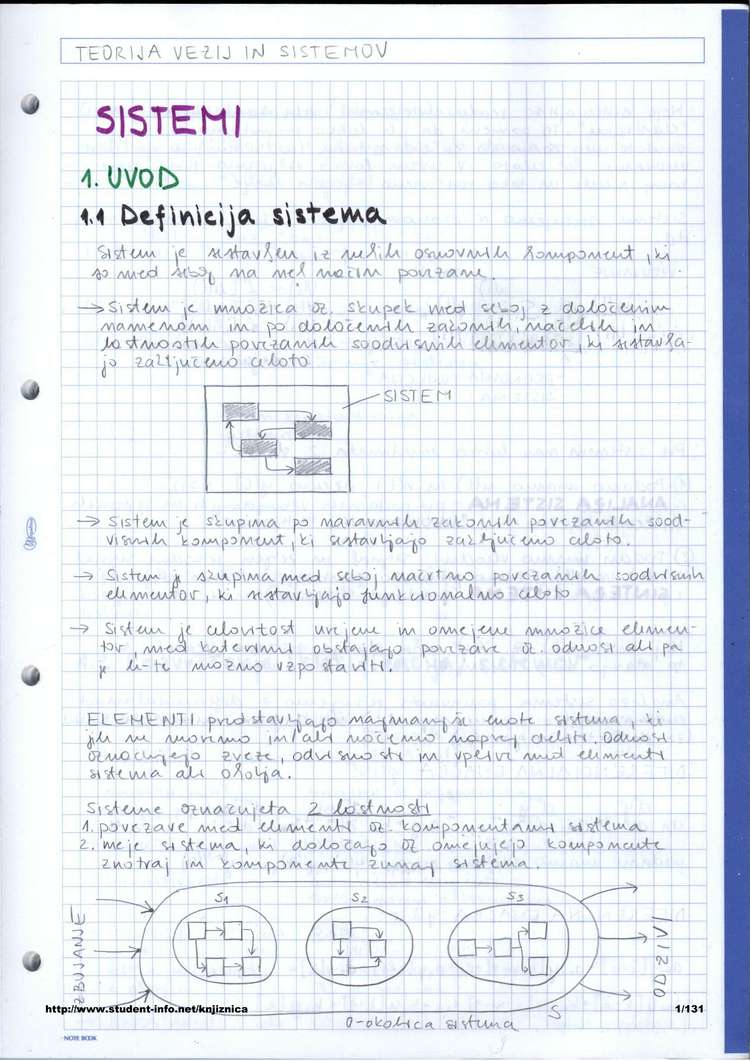 TEORIJA VEZIJ IN SISTEMOV
SISTEMI
1. UVOD
1.1 Definicija sistema
Sistem je sestavljen iz nekih osnovnih komponent, ki
so med seboj na nek način povezane.
→ Sistem je množica oz. skupek med seboj z določenim
namenom in po določenih zakonih, načelih in
lastnostih povezanih soodvisnih elementov, ki sestavlja-
jo zaključeno celoto
SISTEM
→ Sistem je skupina po naravnih zakonih povezanih sood-
visnih komponent, ki sestavljajo zaključeno celoto.
→ Sistem je skupina med seboj načrtno povezanih soodvisnih
elementov, ki sestavljajo funkcionalno celoto
→ Sistem je celovitost urejene in omejene množice elemen-
tov, med katerimi obstajajo povezave oz. odnosi ali pa
je le-te možno vzpostaviti.
ELEMENTI predstavljajo najmanjše enote sistema, ki
jih ne moremo in/ali nočemo naprej deliti. Odnosi
označujejo zveze, odvisnosti in vplivi med elementi
sistema ali okolja.
Sisteme označujeta 2 lastnosti
1. povezave med elementi oz. komponentami sistema
2. meje sistema, ki določajo oz omejujejo komponente
znotraj in komponente zunaj sistema.
S1 S2 S3
VZBUJANJE
ODZIVI
S
O-okolica sistema
http://www.student-info.net/knjiznica
1/131
NOTE BOOK